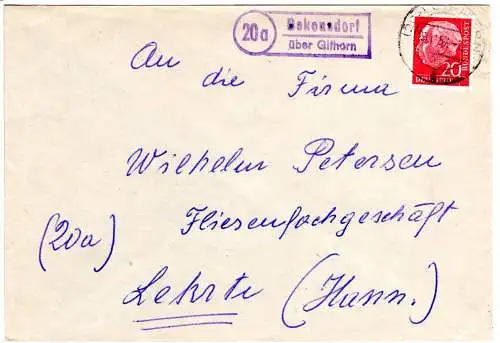 20a
Bokensdorf
über Gifhorn
20
DEUTSCHE
BUNDESPOST
An
die Firma
Wilhelm Petersen
Fliesenfachgeschäft
(20a)
Lehrte (Hann.)